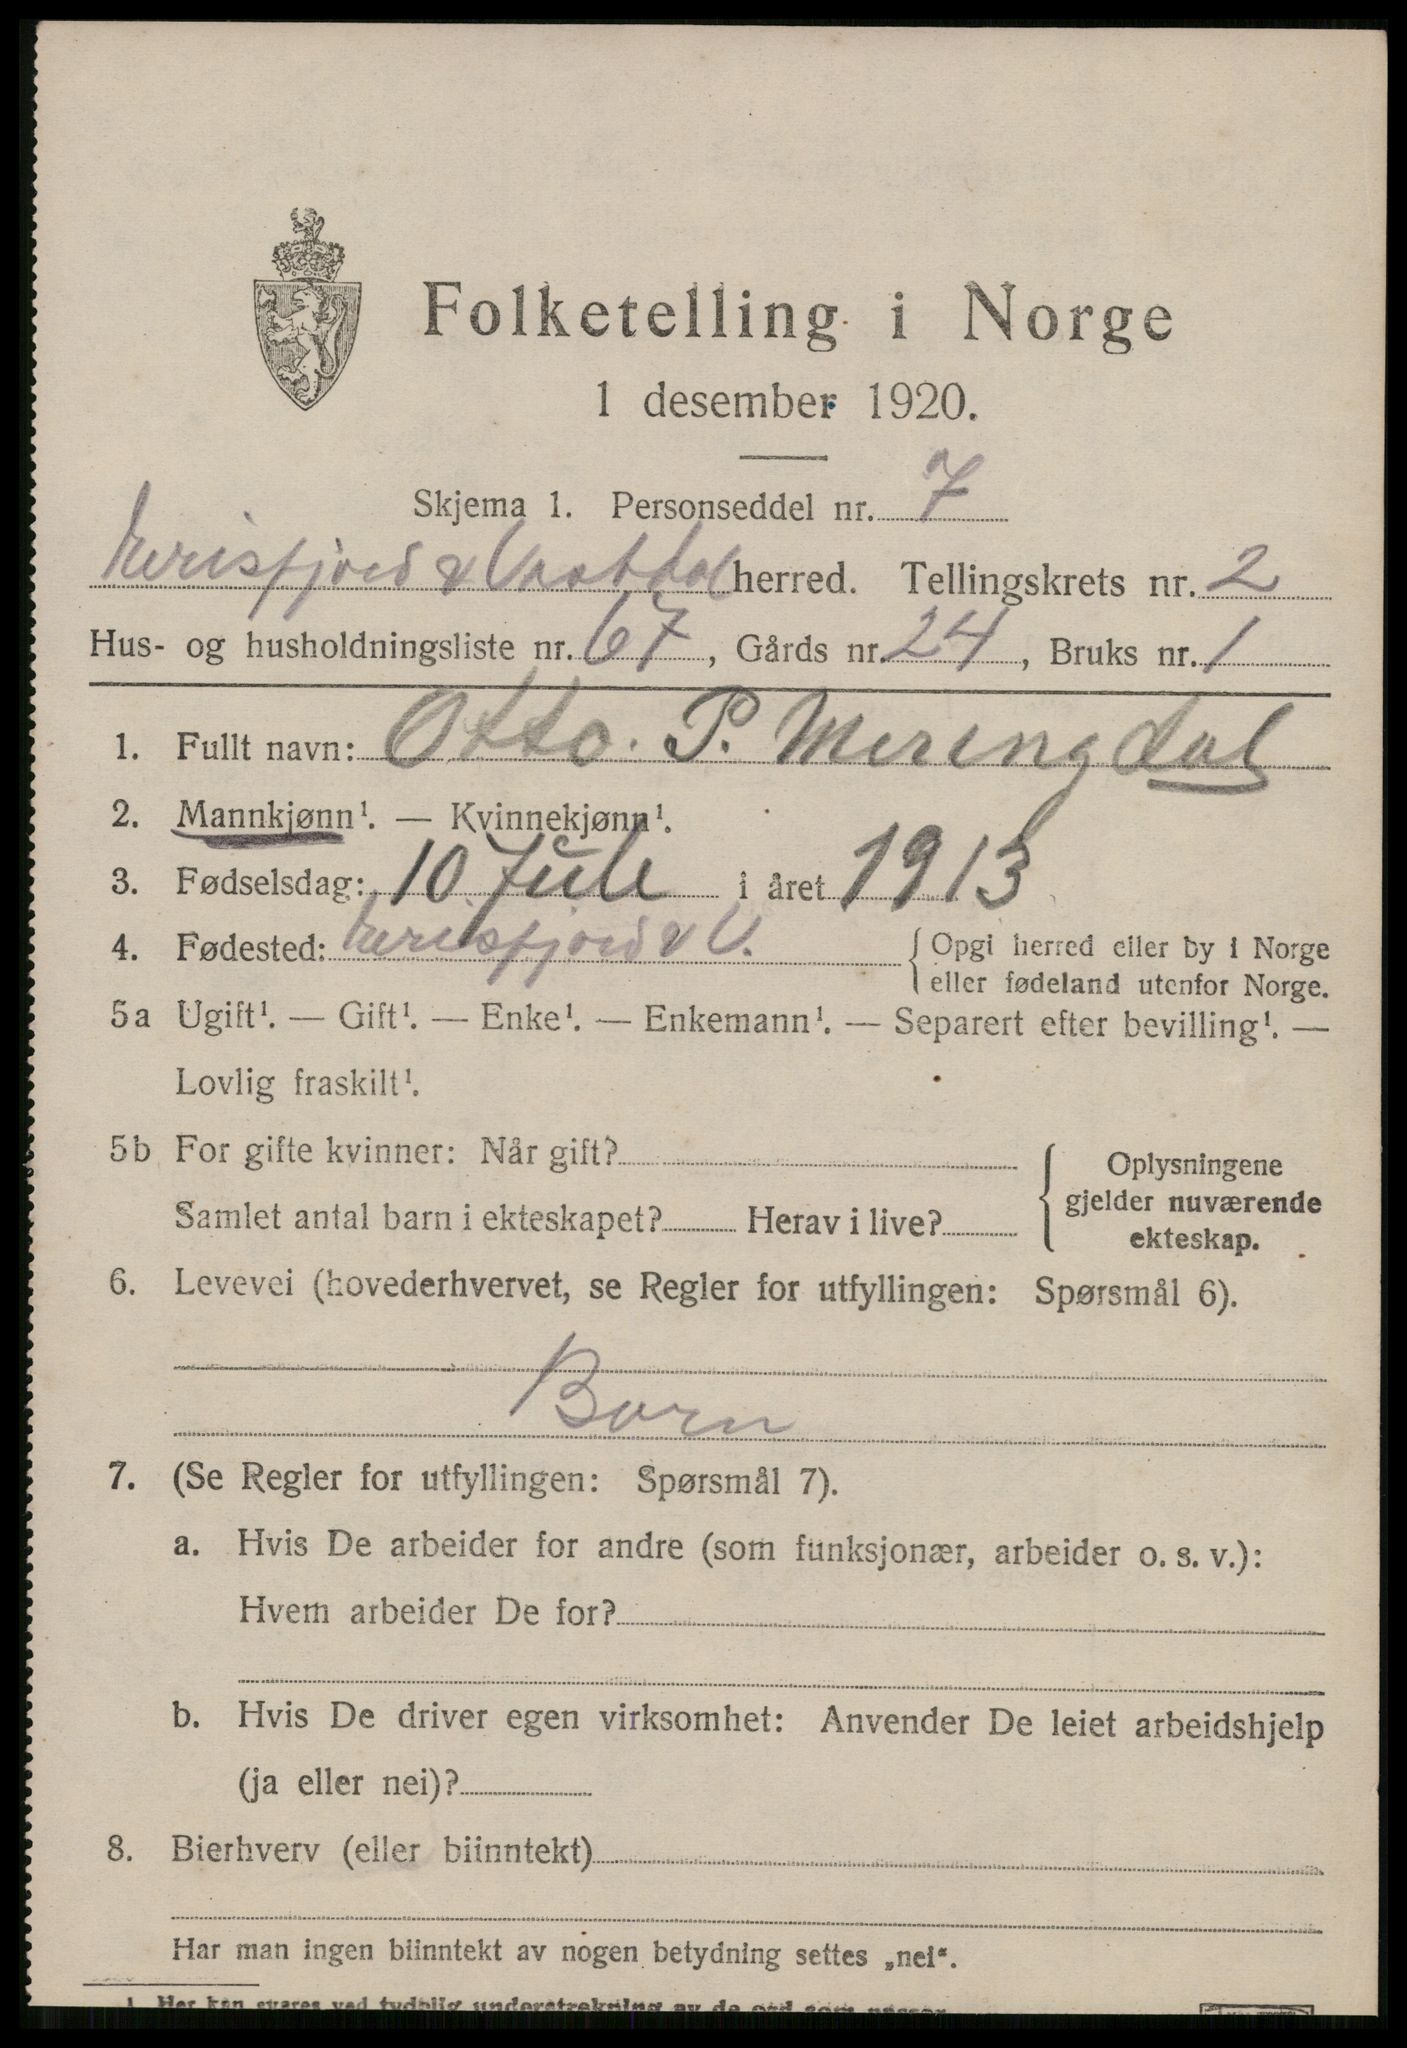 Folketelling i Norge
1 desember 1920.
Skjema 1. Personseddel nr. 7
Eirisfjord & Vaattdal herred. Tellingskrets nr. 2
Hus- og husholdningsliste nr. 67, Gårds nr. 24, Bruks nr. 1
1. Fullt navn: Otto. P. Meringdal
2. Mannkjønn¹. — Kvinnekjønn¹.
3. Fødselsdag: 10 Juli i året 1913
4. Fødested: Eirisfjord & V. { Opgi herred eller by i Norge
eller fødeland utenfor Norge.
5a Ugift¹. — Gift¹. — Enke¹. — Enkemann¹. — Separert efter bevilling¹. —
Lovlig fraskilt¹.
5b For gifte kvinner: Når gift?
Samlet antal barn i ekteskapet? Herav i live?
Oplysningene
gjelder nuværende
ekteskap.
6. Levevei (hovederhvervet, se Regler for utfyllingen: Spørsmål 6).
Born
7. (Se Regler for utfyllingen: Spørsmål 7).
a. Hvis De arbeider for andre (som funksjonær, arbeider o. s. v.):
Hvem arbeider De for?
b. Hvis De driver egen virksomhet: Anvender De leiet arbeidshjelp
(ja eller nei)?
8. Bierhverv (eller biinntekt)
Har man ingen biinntekt av nogen betydning settes „nei“.
1 Her kan svares ved tydelig understrekning av de ord som passer.